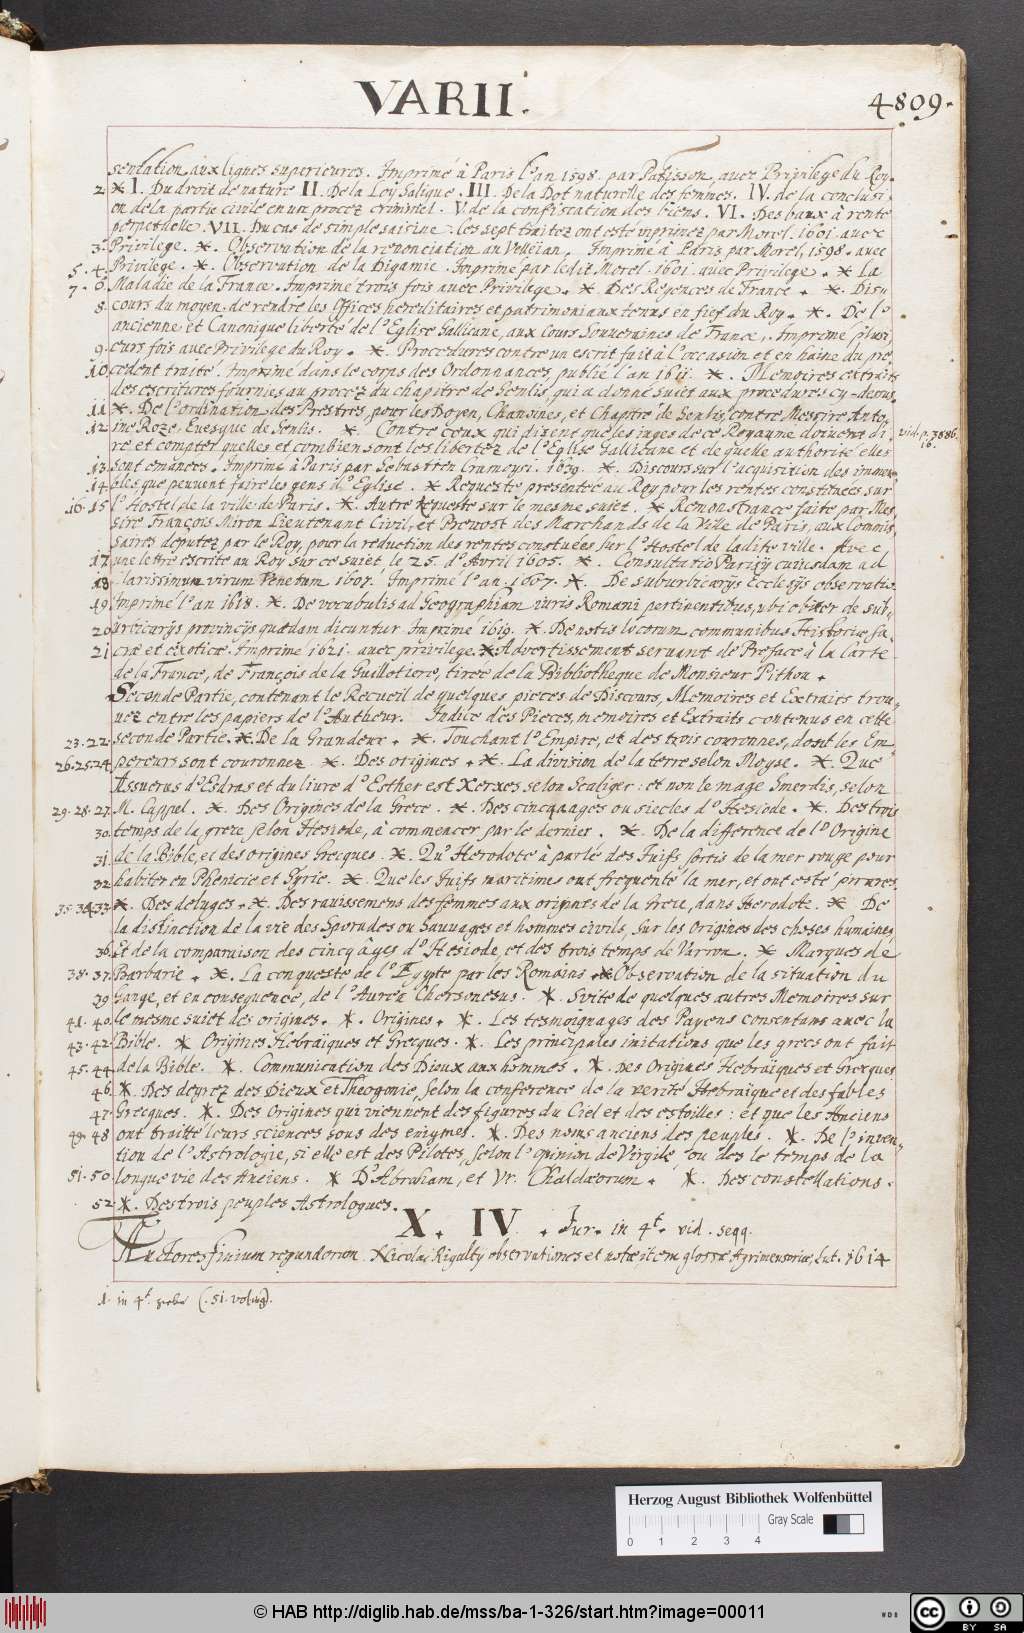 VARII.
4809.
sentation aux lignes superieures. Imprimé à Paris l'an 1598. par Patisson, avec Privilege du Roy.
2. * I. Du droit de nature II. De la Loy Salique. III. De la Dot naturelle des femmes. IV. de la conclusi-
on de la partie civile en un procez criminel. V. de la confiscation des biens. VI. Des baux à rente
perpetuelle. VII. Du cas de simple saisine. Ces sept traitez ont esté imprimez par Morel. 1601. avec
3. Privilege. *. Observation de la renonciation au Velleian. Imprimé à Paris par Morel, 1598. avec
5. 4. Privilege. *. Observation de la Digamie. Imprimé par ledit Morel. 1601. avec Privilege. * La
7. 6. Maladie de la France. Imprimé trois fois avec Privilege. *. Des Regences de France. *. Dis-
8. cours du moyen de rendre les Offices hereditaires et patrimoniaux tenus en fief du Roy. *. De l'
ancienne et Canonique liberté de l'Eglise Gallicane, aux Cours Souveraines de France. Imprimé plusi-
9. eurs fois avec Privilege du Roy. *. Procedures contre un escrit fait à l'occasion et en haine du pre-
10. cedent traité. Imprimé dans le corps des Ordonnances, publié l'an 1611. *. Memoires extraits
des escritures fournies au procez du chapitre de Genlis, qui a donné suiet aux procedures cy-dessus.
11. *. De l'ordination des Prestres, pour les Doyen, Chanoines, et Chapitre de Genlis, contre Messire Anto-
12. ine Roze, Evesque de Senlis. *. Contre ceux qui disent que les iuges de ce Royaume doivent di-
vid. p. 3886. 16.
re et compter quelles et combien sont les libertez de l'Eglise Gallicane et de quelle authorité elles
13. sont emanées. Imprimé à Paris par Sebastien Cramoysi. 1639. *. Discours sur l'acquisition des immeu-
14. bles que peuvent faire les gens d'Eglise. * Requeste presentée au Roy pour les rentes constituées sur
16. 15. l'Hostel de la ville de Paris. *. Autre requeste sur le mesme suiet. * Remonstrance faite par Mes-
sire François Miron Lieutenant Civil, et Prevost des Marchands de la Ville de Paris, aux Commis-
saires deputez par le Roy, pour la reduction des rentes constuées sur l'Hostel de ladite ville. Avec
17. une lettre escrite au Roy sur ce suiet le 25. d'Avril 1605. *. Consultatio Parisij cuiusdam ad
18. clarissimum virum Venetum 1607. Imprimé l'an 1607. *. De suburbicarijs Ecclesijs observatio.
19. Imprimé l'an 1618. *. De vocabulis ad Geographiam iuris Romani pertinentibus, ubi obiter de sub-
20. urbicarijs provincijs quaedam dicuntur. Imprimé 1619. *. De notis locorum communibus Historiae sa-
21. crae et exoticae. Imprimé 1621. avec privilege. * Advertissement servant de Preface à la Carte
de la France, de François de la Guillotiere, tirée de la Bibliotheque de Monsieur Pithou.
Seconde Partie, contenant le Recueil de quelques pieces de Discours, Memoires et Extraits trou-
uez entre les papiers de l'Autheur. Indice des Pieces, memoires et Extraits contenus en cette
23. 22. seconde Partie. *. De la Grandeur. *. Touchant l'Empire, et des trois couronnes, dont les Em-
26. 25. 24. pereurs sont couronnez. *. Des origines. *. La division de la terre selon Moyse. *. Que
Assuerus d'Esdras et du livre d'Esther est Xerxes selon Scaliger: et non le mage Smerdis, selon
29. 28. 27. M. Cappel. *. Des Origines de la Grece. *. Des cinq aages ou siecles d'Hesiode. *. Des trois
30. temps de la grece selon Hesiode, à commencer par le dernier. *. De la difference de l'Origine
31. de la Bible, et des origines Grecques. *. Qu'Herodote à parlé des Juifs sortis de la mer rouge pour
32. habiter en Phenicie et Syrie. *. Que les Juifs maritimes ont frequenté la mer, et ont esté pirates.
35. 34. 33. *. Des deluges. *. Des ravissemens des femmes aux origines de la Grece, dans Herodote. *. De
la distinction de la vie des Sporades ou Sauvages et hommes civils, sur les Origines des choses humaines,
36. Et de la comparaison des cinq âges d'Hesiode, et des trois temps de Varron. * Marques de
38. 37. Barbarie. *. La conqueste de l'Egypte par les Romains. * Observation de la situation du
39. Gange, et en consequence, de l'Aurea Chersonesus. *. Svite de quelques autres Memoires sur
41. 40. le mesme suiet des origines. *. Origines. *. Les tesmoignages des Payens consentans avec la
43. 42. Bible. * Origines Hebraiques et Grecques. *. Les principales imitations que les grecs ont fait
45. 44. de la Bible. *. Communication des Dieux aux hommes. *. Des Origines Hebraïques et Grecques
46. *. Des degrez des Dieux et Theogonie, selon la conference de la verité Hebraïque et des fables
47. Grecques. *. Des Origines qui viennent des figures du Ciel et des estoilles: et que les Anciens
49. 48. ont traitté leurs sciences sous des enigmes. *. Des noms anciens des peuples. *. De l'inven-
tion de l'Astrologie, si elle est des Pilotes, selon l'opinion de Virgile, ou dés le temps de la
51. 50. longue vie des Anciens. * D'Abraham, et Vr. Chaldaeorum. *. Des constellations.
52. *. Des trois peuples Astrologues.
X. IV. Jur. in 4t. vid. seqq.
Auctores finium regundorum. Nicolai Rigalty observationes et notae item glossae Agrimensoriae, Lut. 1614
1. in 4t. (51. vol
Herzog August Bibliothek Wolfenbüttel
Gray Scale
0 1 2 3 4
© HAB http://diglib.hab.de/mss/ba-1-326/start.htm?image=00011
WDB
cc BY SA